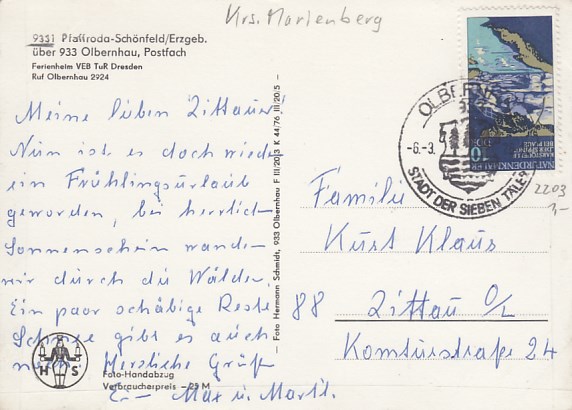 Krs. Marienberg
9331 Pfaffroda-Schönfeld/Erzgeb.
über 933 Olbernhau, Postfach
Ferienheim VEB TuR Dresden
Ruf Olbernhau 2924
Meine lieben Zittauer!
Nun ist es doch wieder
ein Frühlingsurlaub
geworden, bei herrlich
Sonnenschein wande-
wir durch die Wälder.
Ein paar schäbige Reste
Schnee gibt es auch
noch. Herzliche Grüße
Max u. Martl.
H S
Foto-Handabzug
Verbraucherpreis -,25 M
Foto Hermann Schmidt, 933 Olbernhau F III/20/3 K 44/76 III/20/5
OLBERNHAU
-6.-3.
STADT DER SIEBEN TÄLER
10
DDR
NATURDENKMÄLER
2203
1,-
Familie
Kurt Klaus
88 Zittau O/L
Komturstraße 24